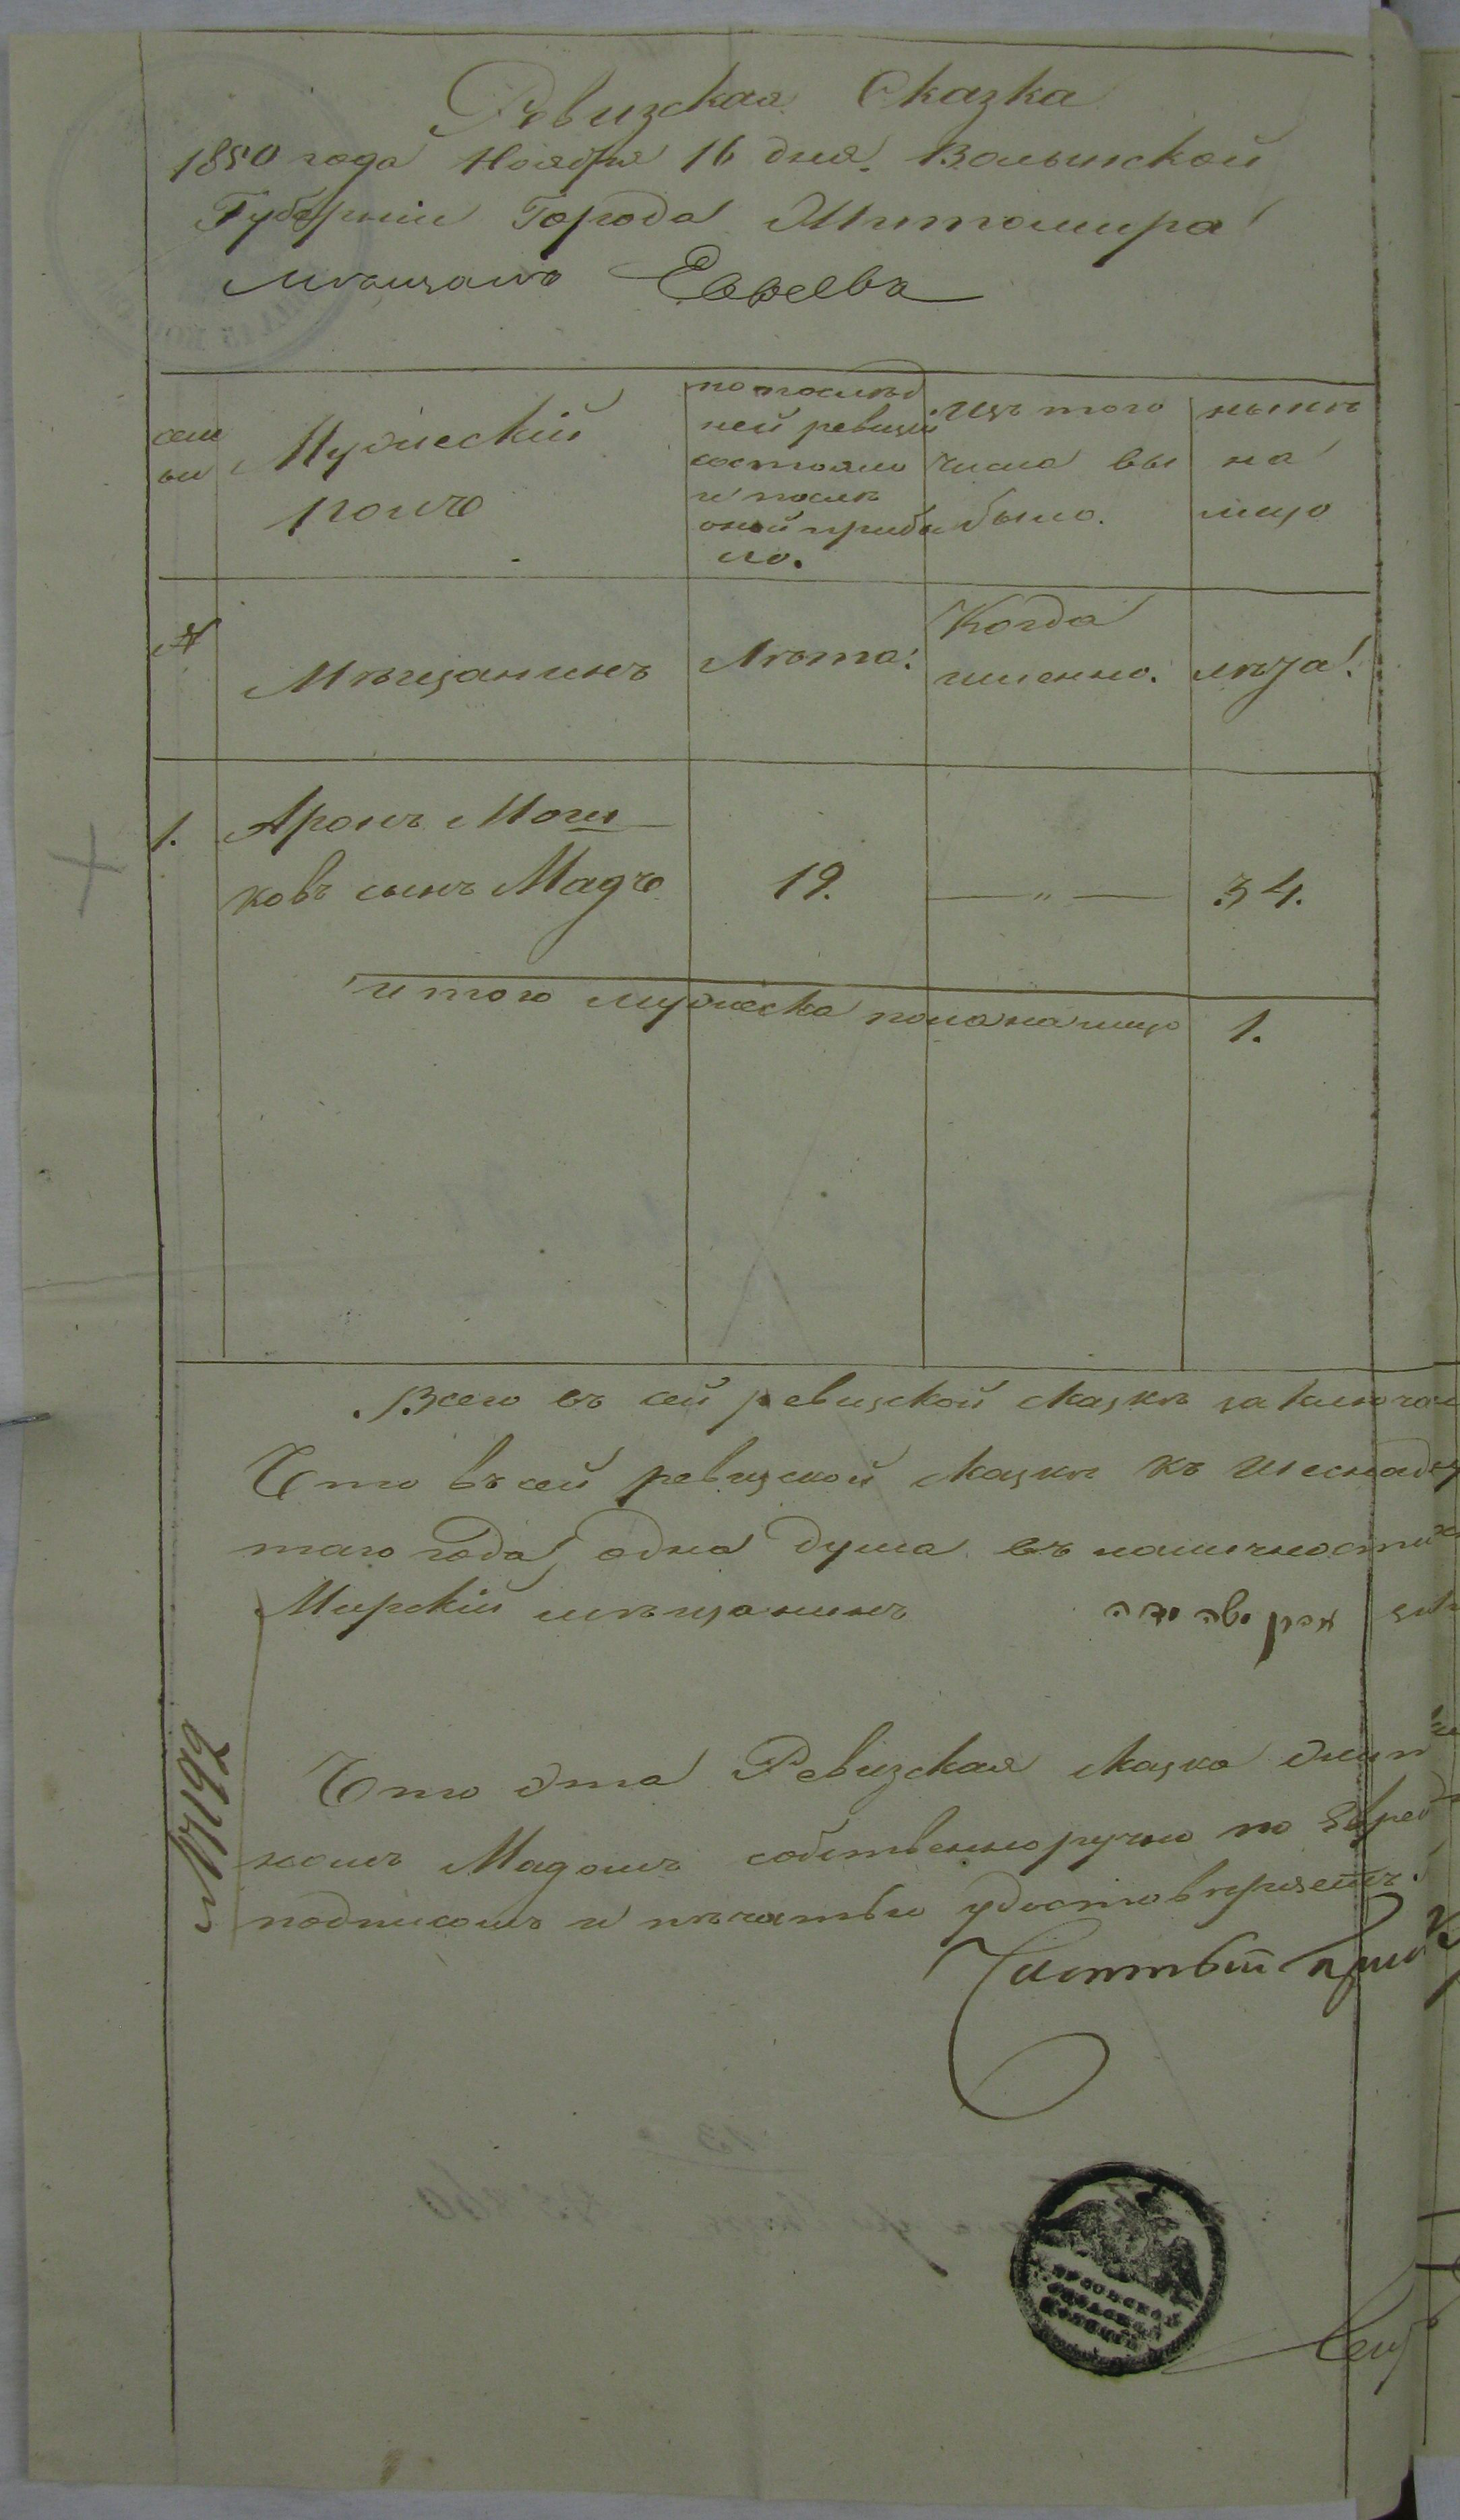 Ревизская Сказка
1850 года Ноября 16 дня. Волынской
Губерніи Города Житомира
мѣщанъ Евреевъ
семьи
Мужескій полъ
по послѣдней ревизіи состояло и послѣ оной прибыло.
Изъ того числа выбыло.
нынѣ на лицо
№
Мѣщанинъ
Лѣта.
Когда именно.
лѣта.
1.
Аронъ Мош
ковъ сынъ Мадъ
19.
— „ —
34.
и того мужеска пола на лицо 1.
Всего въ сей ревизской сказкѣ заключае
Что въ сей ревизской сказкѣ къ шеснадц
таго года одна душа въ наличности
мирскій мѣщанинъ
Что эта Ревизская сказка Жит
комъ Мадомъ собственноручно по Еврей
подписомъ и печатью удостовѣряетъ.
Частный При
№ 1792